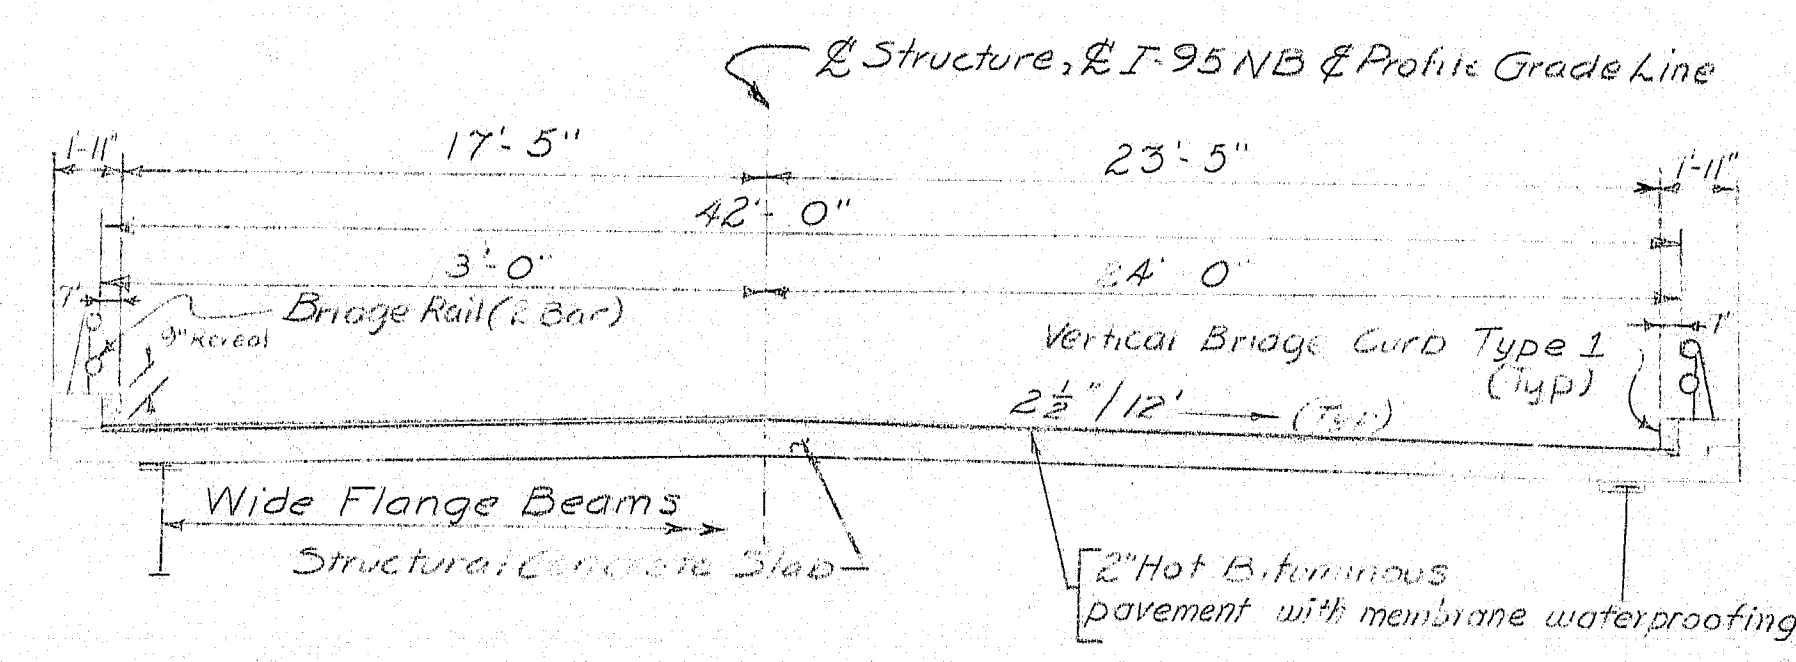 ℄ Structure, ℄ I-95 NB ¢ Profile Grade Line
1'-11" 17'-5" 23'-5" 1'-11"
42'-0"
3'-0" 4' 0"
7" 7"
Bridge Rail (2 Bar)
9" Reveal
Vertical Bridge Curb Type 1
(Typ)
2½"/12' (Typ)
Wide Flange Beams
Structural Concrete Slab
2" Hot Bituminous
pavement with membrane waterproofing